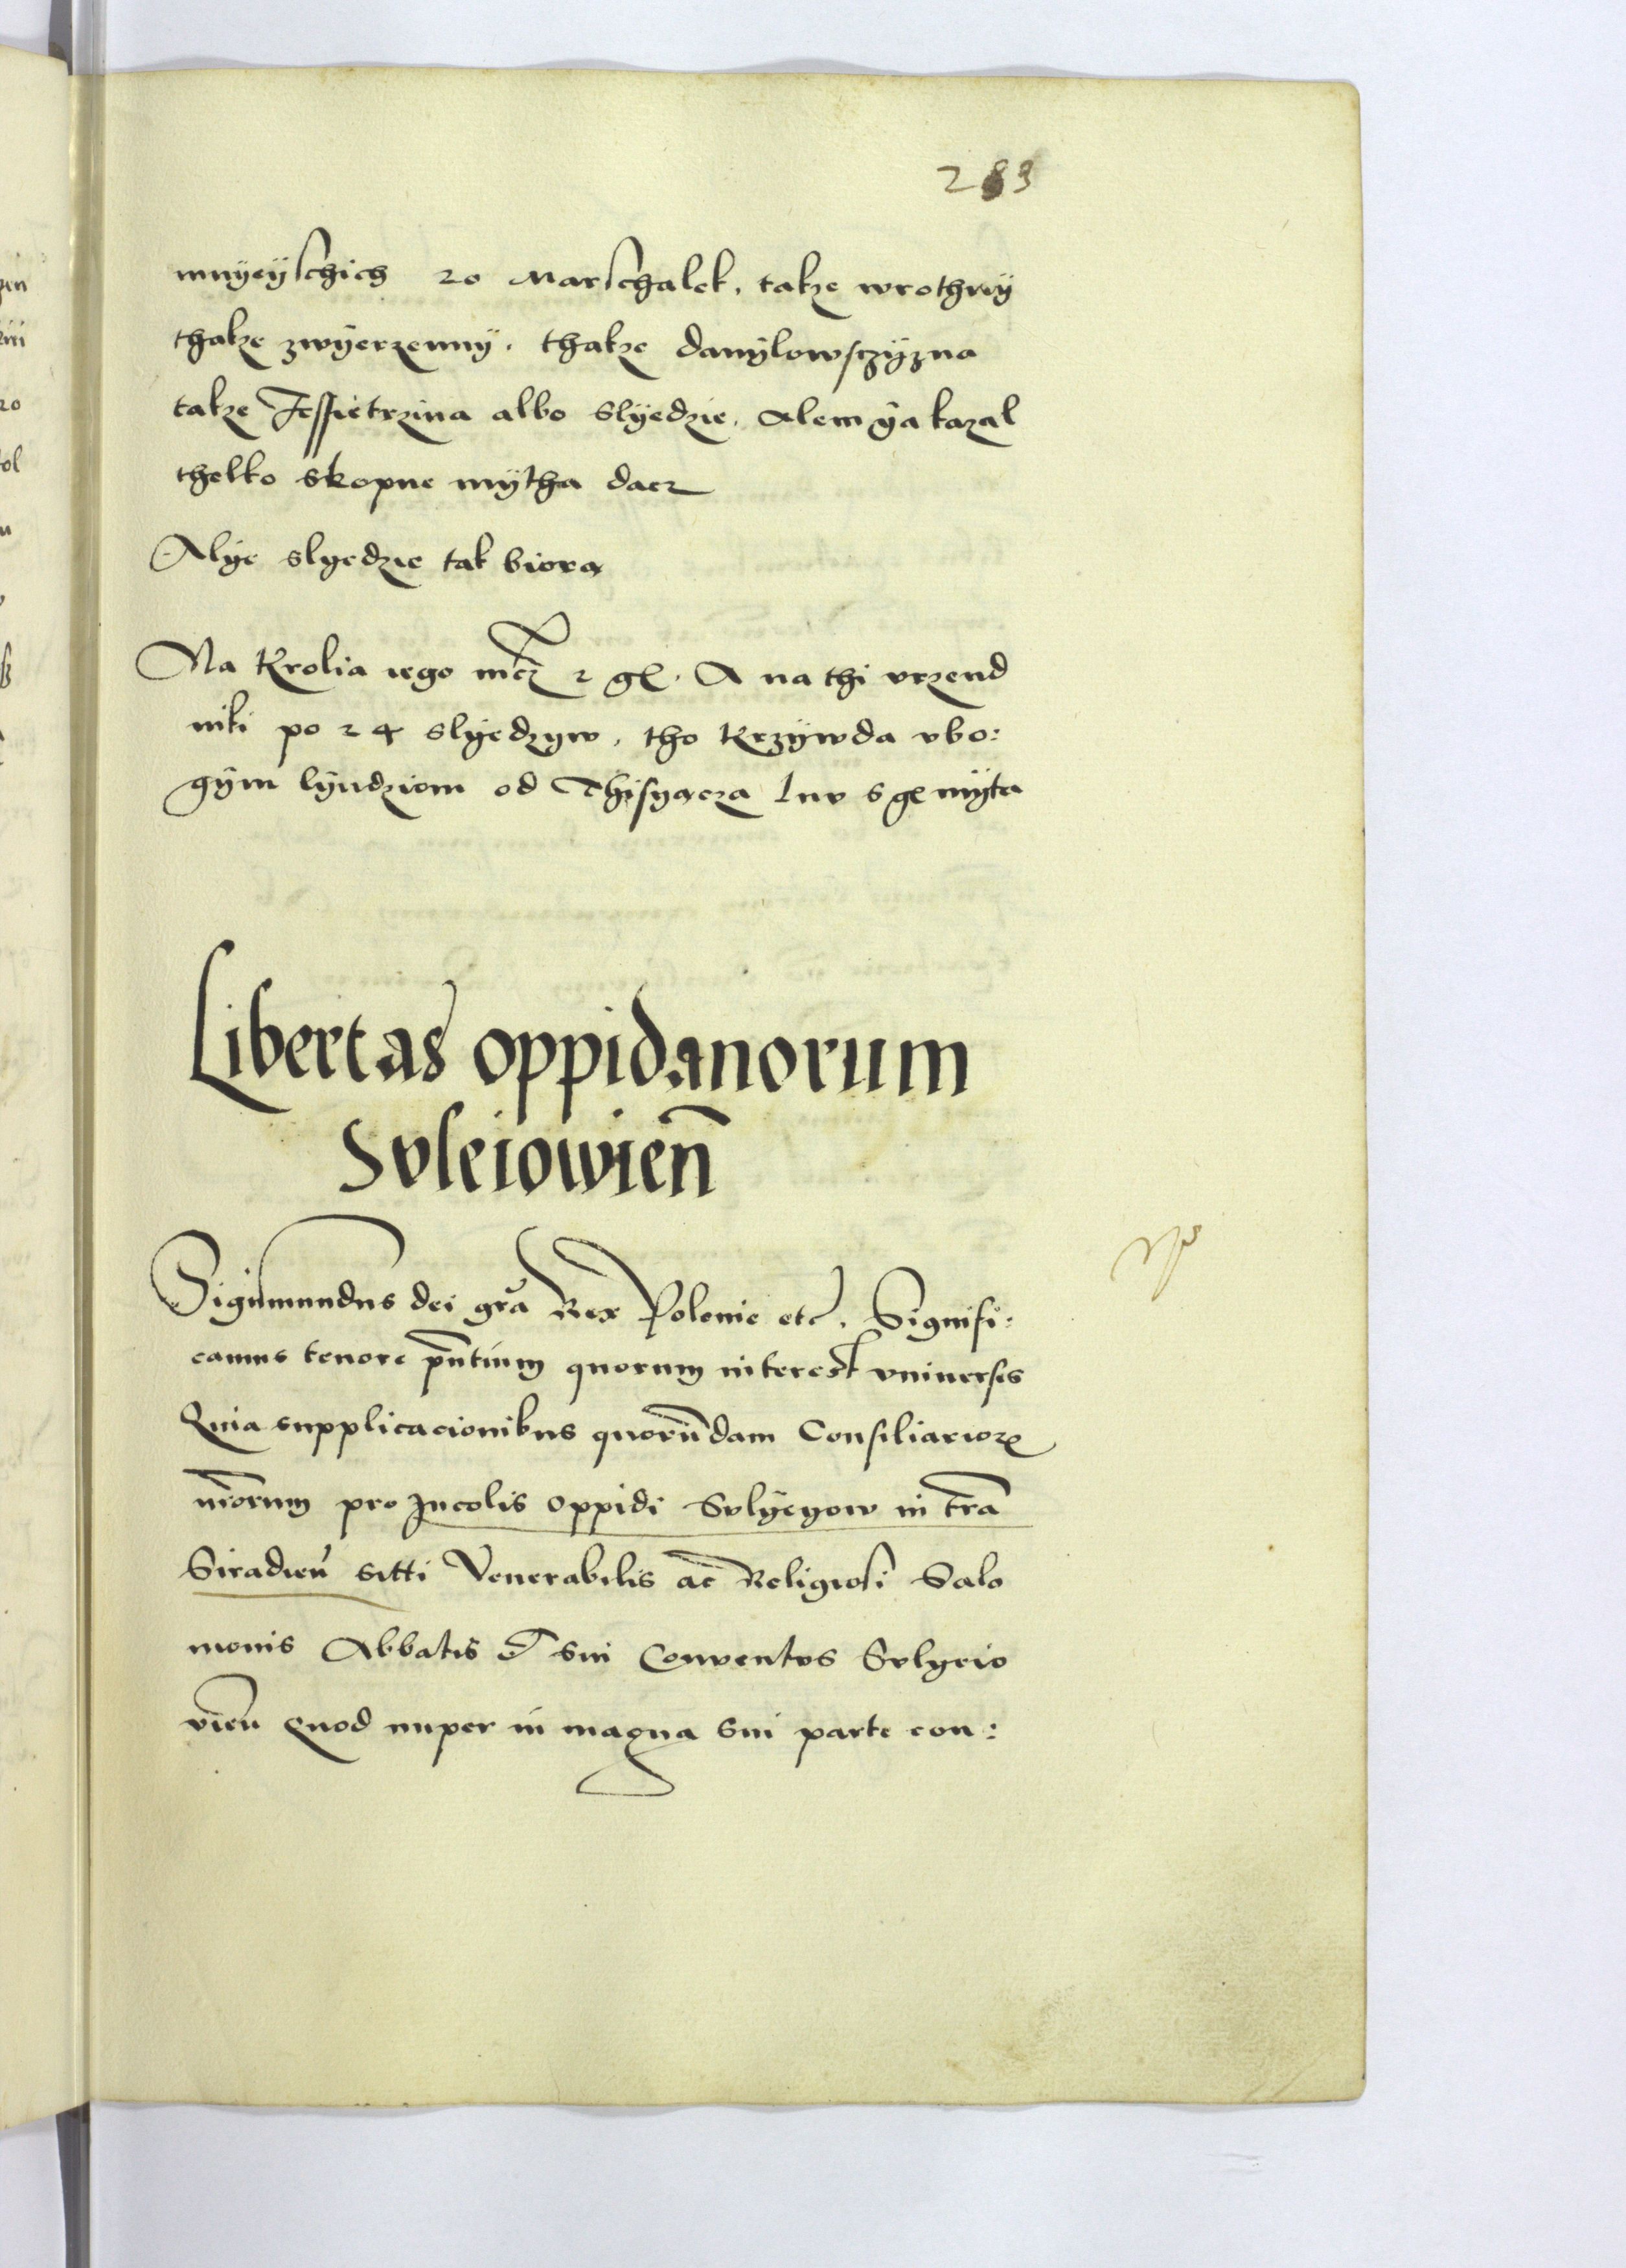 283
mnyeyschich 20 Marschalek, takze wrothny
thakze zwyerzenny. thakze danylowsczyzna
takze Jessietrzina albo slyedzie, Alem ya kazal
thelko skopne mytha dacz
Alye slyedzie tak biora
Na Krolia iego mcz 2 gl. A na thi vrzend
niki po 24 slyedzyw, tho Krzywda vbo:
gym lyudziom od Thisyacza Inv s ge myta
Libertas oppidanorum
Svleiowien̄
Sigismundus dei gr̄a Rex Polonie etc. Signifi:
camus tenore p̄ntium quorum interest vniuersis
Quia supplicacionibus quorūdam Consiliarioꝝ
n̄rorum pro Incolis oppidi Svlyeyow in tr̄a
Siradien̄ sitti Venerabilis ac Religiosi Salo
monis Abbatis et sui Conventvs Svlyeio
vien̄ Quod nuper in magna sui parte con: